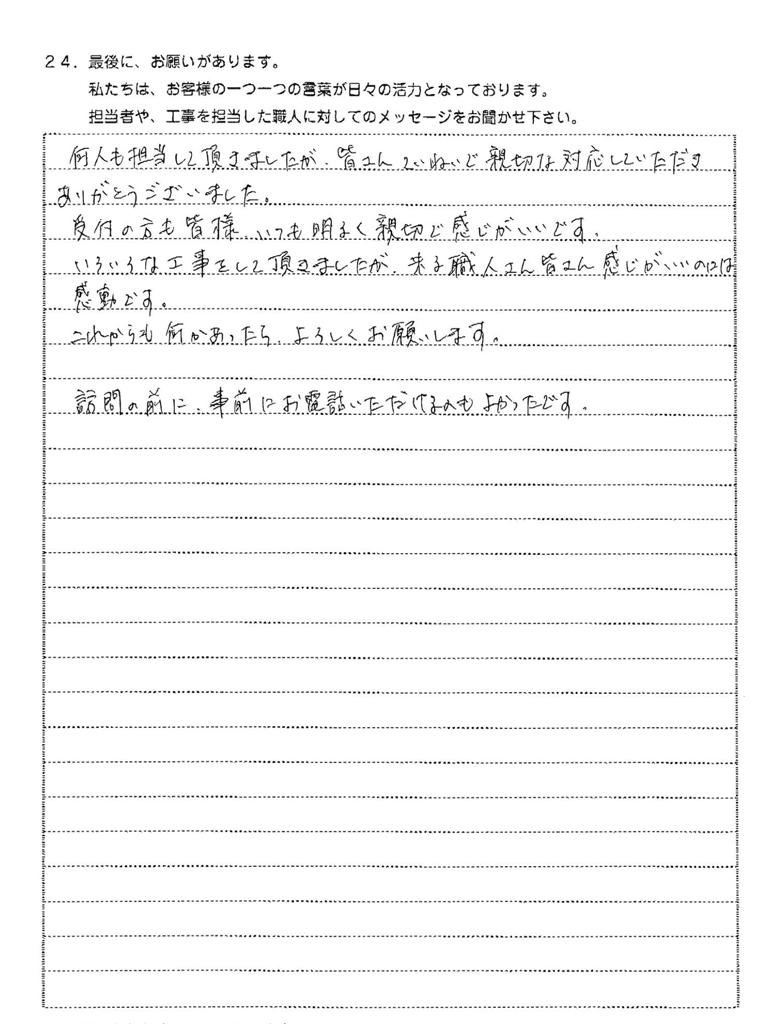 24．最後に、お願いがあります。
私たちは、お客様の一つ一つの言葉が日々の活力となっております。
担当者や、工事を担当した職人に対してのメッセージをお聞かせ下さい。
何人も担当して頂きましたが、皆さんていねいで親切な対応していただき
ありがとうございました。
受付の方も皆様、いつも明るく親切で感じがいいです。
いろいろな工事をして頂きましたが、来る職人さん皆さん感じがいいのには
感動です。
これからも何かあったら、よろしくお願いします。
訪問の前に、事前にお電話いただけるのもよかったです。